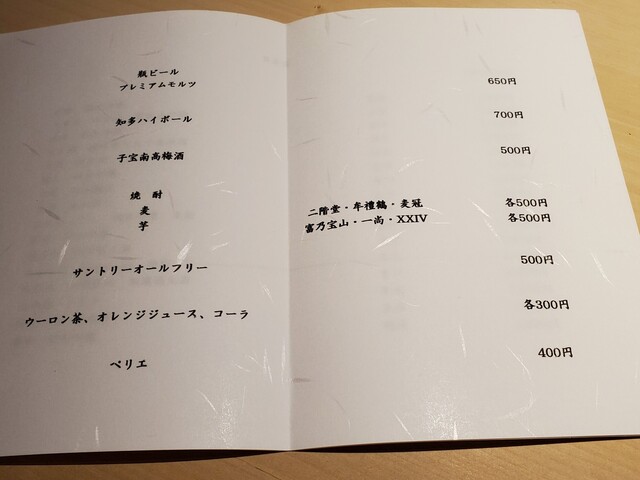 瓶ビール
プレミアムモルツ 650円
知多ハイボール 700円
子宝南高梅酒 500円
焼 酎
麦 二階堂・牟禮鶴・麦冠 各500円
芋 富乃宝山・一尚・XXIV 各500円
サントリーオールフリー 500円
ウーロン茶、オレンジジュース、コーラ 各300円
ペリエ 400円